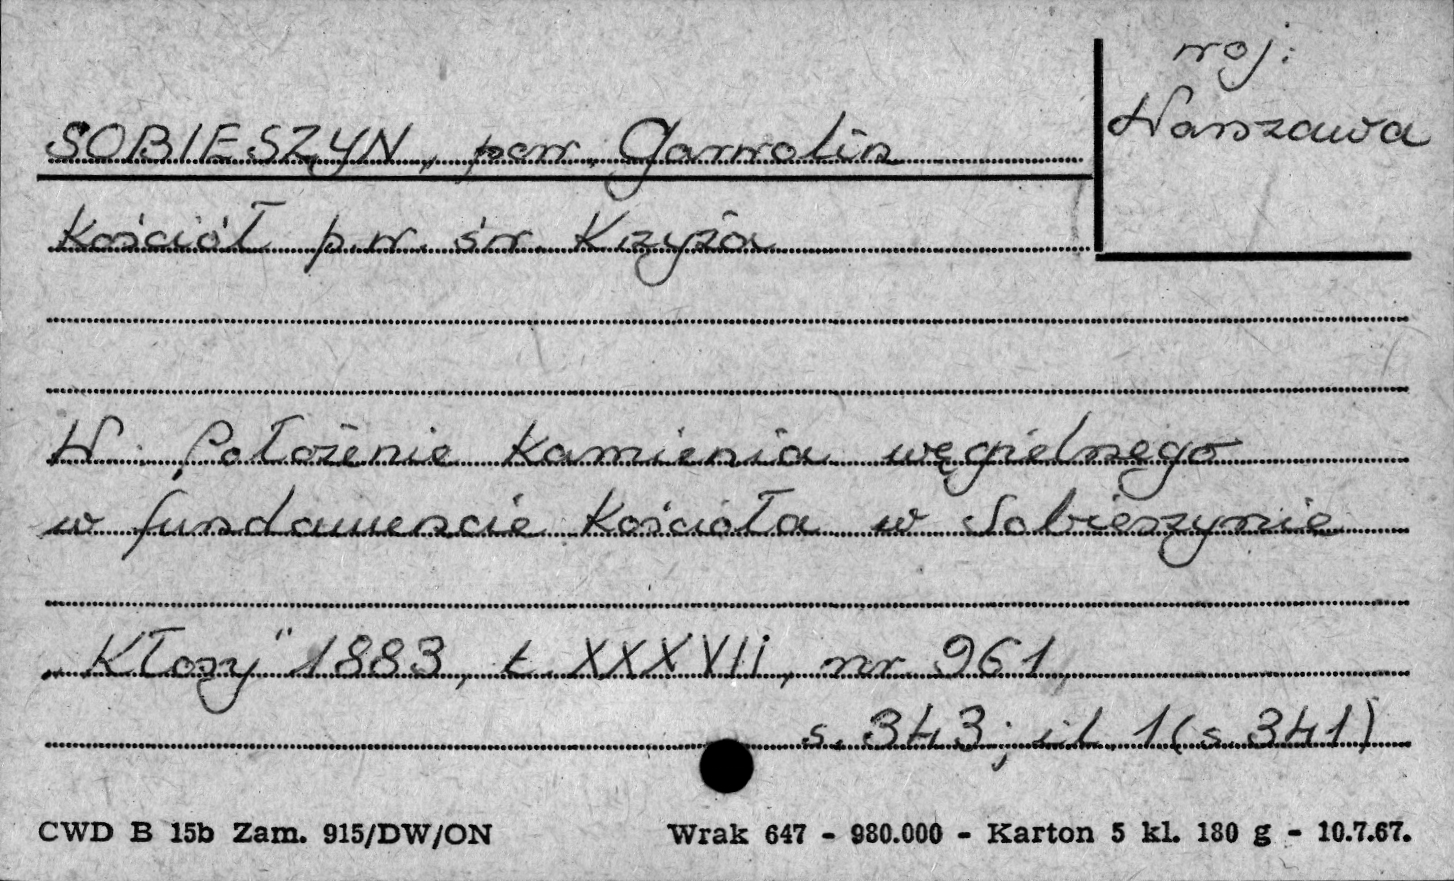 woj:
Warszawa
SOBIESZYN, pow. Garwolin
Kościół p.w. św. Krzyża
W. Położenie kamienia węgielnego
w fundamencie kościoła w Sobieszynie
„Kłosy" 1883, t. XXXVII, nr. 961,
s. 343; il. 1 (s. 341)
CWD B 15b Zam. 915/DW/ON Wrak 647 - 980.000 - Karton 5 kl. 180 g - 10.7.67.